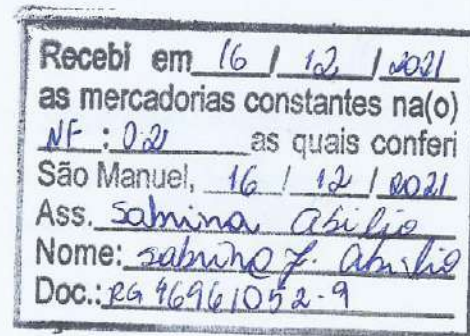 Recebi em 16 / 12 / 2021
as mercadorias constantes na(o)
NF : 021 as quais conferi
São Manuel, 16 / 12 / 2021
Ass. Sabrina Abilio
Nome: Sabrina F. Abilio
Doc.: RG 46961052-9